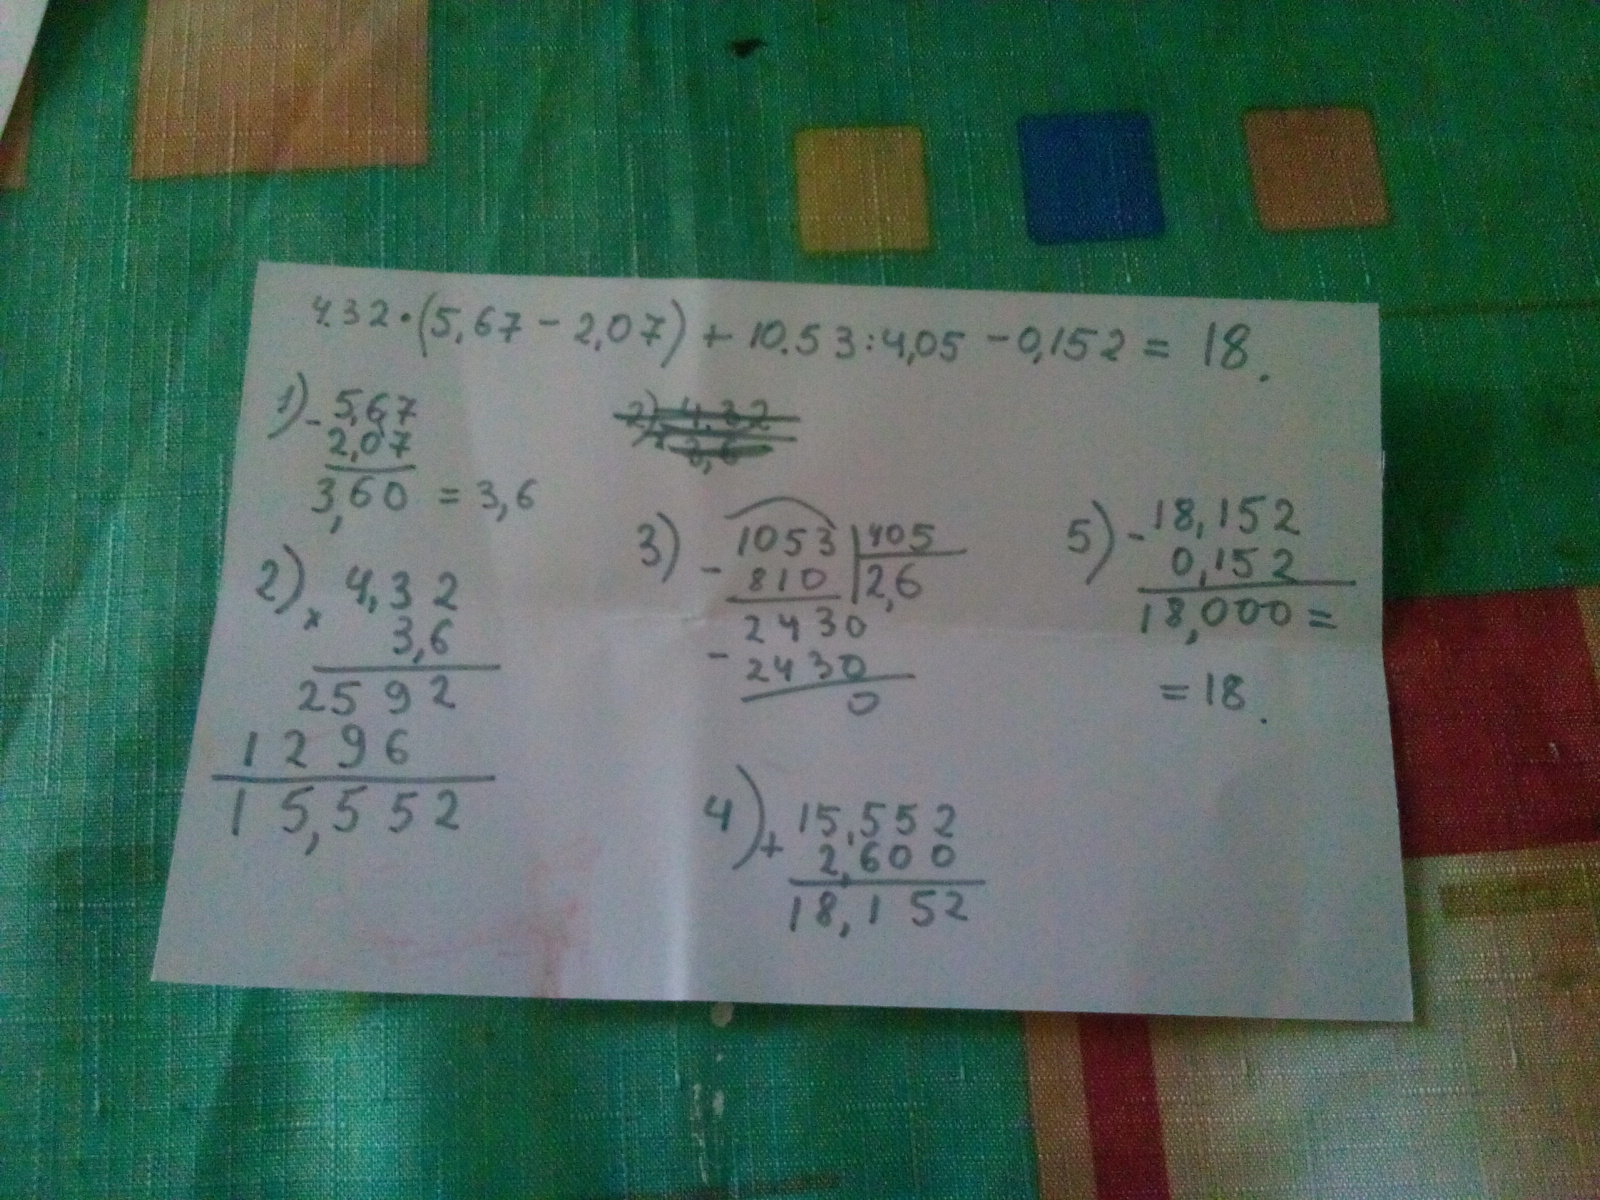 4.32·(5,67-2,07)+10.53:4,05-0,152=18.
1) - 5,67
2,07
3,60 = 3,6
2) 4,32
× 3,6
2) × 4,32
3,6
2592
1296
15,552
3) - 1053 | 405
810 | 2,6
2430
- 2430
0
4) + 15,552
2,600
18,152
5) - 18,152
0,152
18,000 =
= 18.